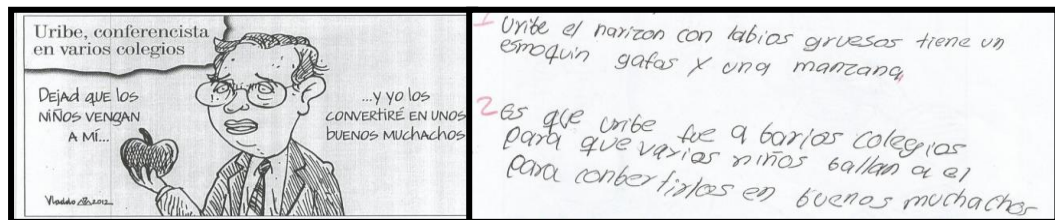 Uribe, conferencista
en varios colegios
DEJAD QUE LOS
NIÑOS VENGAN
A MÍ...
...Y YO LOS
CONVERTIRÉ EN UNOS
BUENOS MUCHACHOS
Vladdo 2012
1 Uribe el narizon con labios gruesos tiene un
esmoquin gafas y una manzana
2 es que uribe fue a barios colegios
para que varios niños ballan a el
para conbertirlos en buenos muchachos